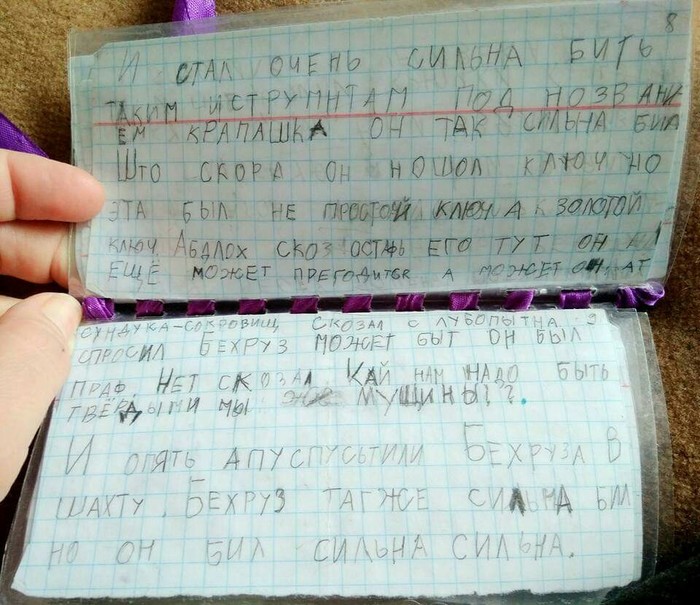 8
И СТАЛ ОЧЕНЬ СИЛЬНА БИТЬ
ТАКИМ ИСТРУМНТАМ ПОД НОЗВАНИ
ЕМ КРАПАШКА ОН ТАК СИЛЬНА БИЛ
ШТО СКОРА ОН НОШОЛ КЛЮЧ НО
ЭТА БЫЛ НЕ ПРОСТОЙ КЛЮЧ А К ЗОЛОТОЙ
КЛЮЧ АБДЛОХ СКОЗ ОСТАВЬ ЕГО ТУТ ОН
ЕЩЁ МОЖЕТ ПРЕГОДИТСЯ А МОЖЕТ ОН АТ
СУНДУКА-СОКРОВИЩ СКОЗАЛ С ЛУБОПЫТНА 9
СПРОСИЛ БЕХРУЗ МОЖЕТ БЫТ ОН БЫЛ
ПРАФ. НЕТ СКОЗАЛ КАЙ НАМ НАДО БЫТЬ
ТВЁРДЫМИ МЫ ЖЕ МУЩИНЫ??.
И ОПЯТЬ АПУСПУСЬТИЛИ БЕХРУЗА В
ШАХТУ. БЕХРУЗ ТАГЖЕ СИЛЬНА БИЛ
НО ОН БИЛ СИЛЬНА СИЛЬНА.